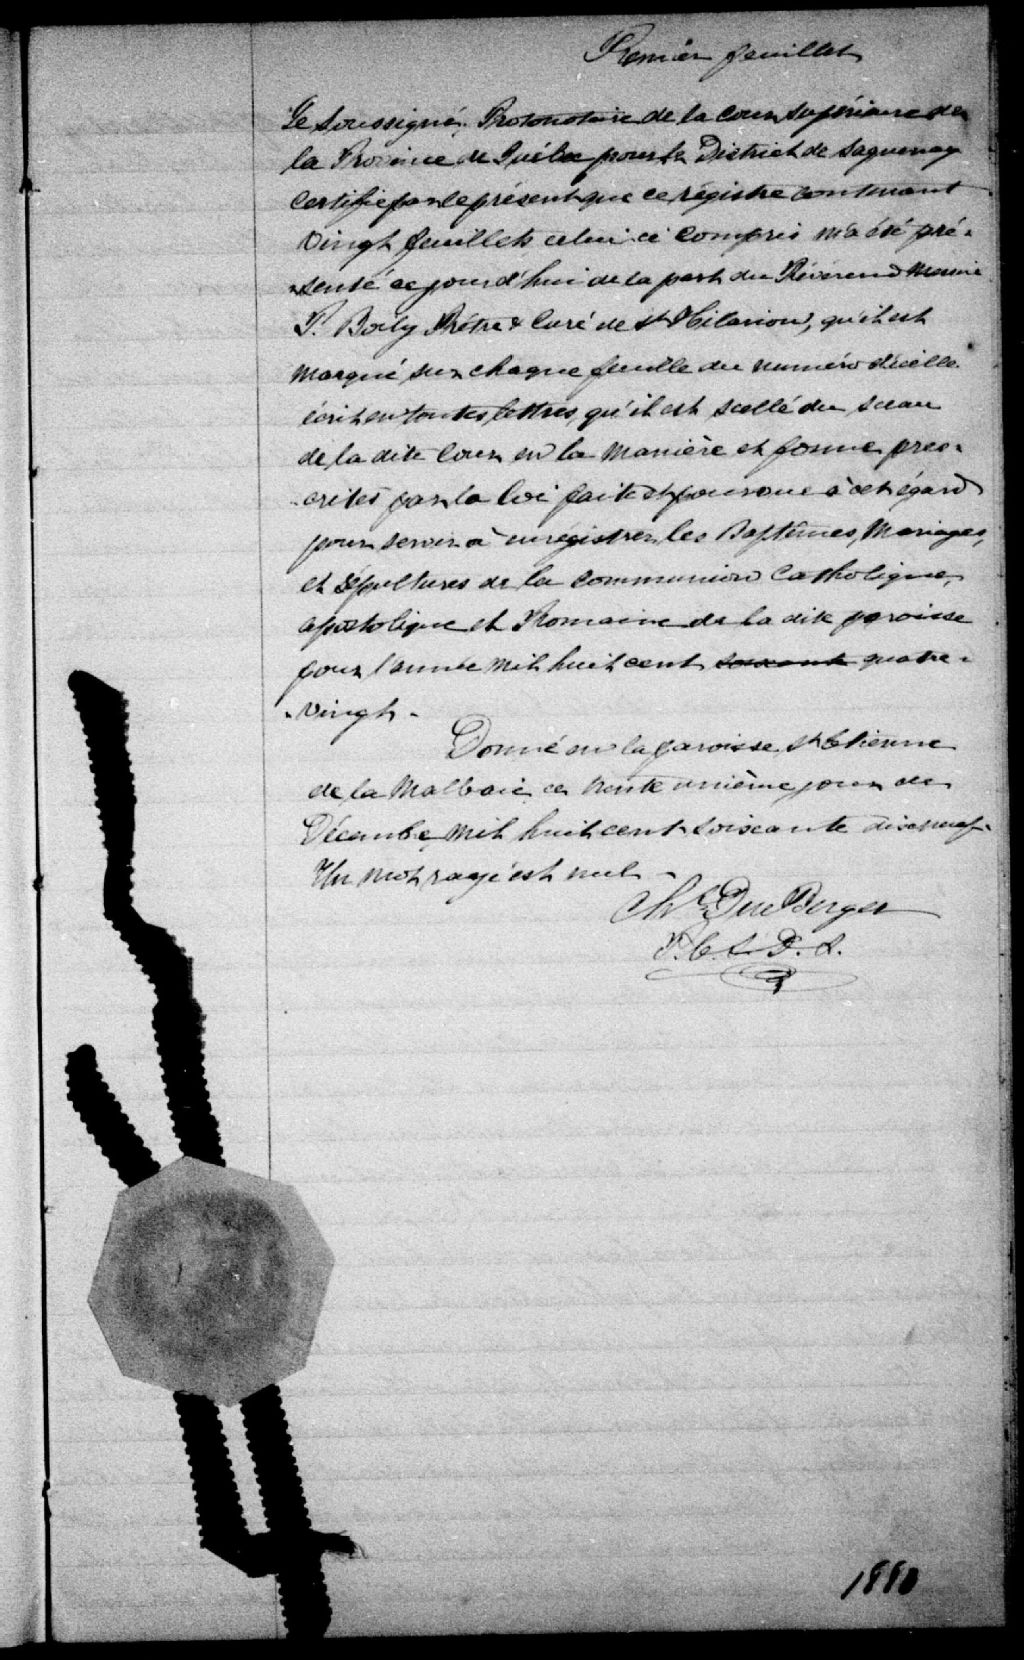 Premier feuillet
Le Soussigné, Protonotaire de la Cour Supérieure de
la Province de Québec pour le District de Saguenay
Certifie par le présent que ce régistre contenant
Vingt feuillets celui-ci compris m'a été pré-
-senté ce jourd'hui de la part du Révérend Messire
P. Boily Prêtre & Curé de St Hilarion, qu'il est
marqué sur chaque feuille du numéro d'icelle
écrit en toutes lettres, qu'il est scellé du sceau
de la dite Cour en la manière et forme pres-
-crites par la loi faite et pourvue à cet égard
pour servir à enrégistrer les Baptêmes, Mariages,
et Sépultures de la Communion Catholique,
apostolique et Romaine de la dite paroisse
pour l'année mil huit cent soixante quatre-
-vingt-
Donné en la paroisse St Etienne
de la Malbaie ce trente unième jour de
Décembre mil huit cent soixante dix neuf-
Un mot rayé est nul-
Chs DuBerger
P. C. S. D. S.
1880